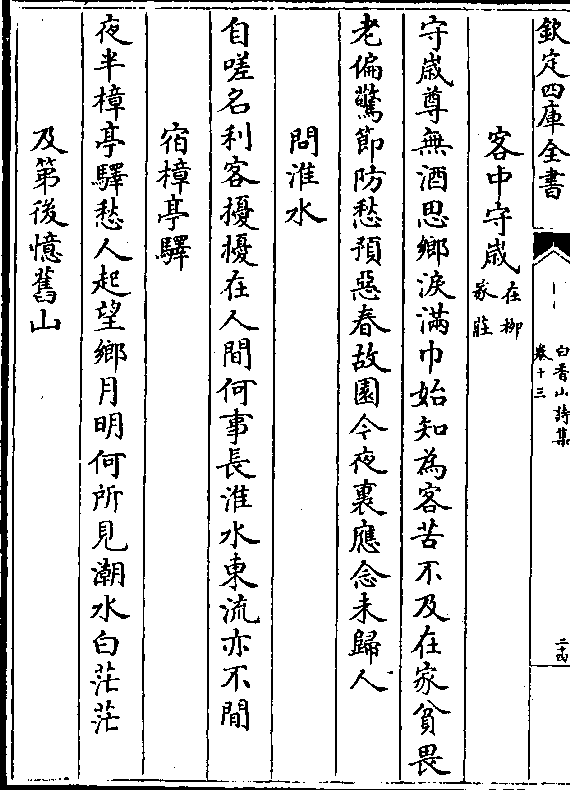 欽定四庫全書
白香山詩集
卷十三
二十四
客中守歳在柳家莊
守歳尊無酒思鄉淚滿巾始知為客苦不及在家貧畏
老偏驚節防愁預惡春故園今夜裏應念未歸人
問淮水
自嗟名利客擾擾在人間何事長淮水東流亦不閒
宿樟亭驛
夜半樟亭驛愁人起望鄉月明何所見潮水白茫茫
及第後憶舊山